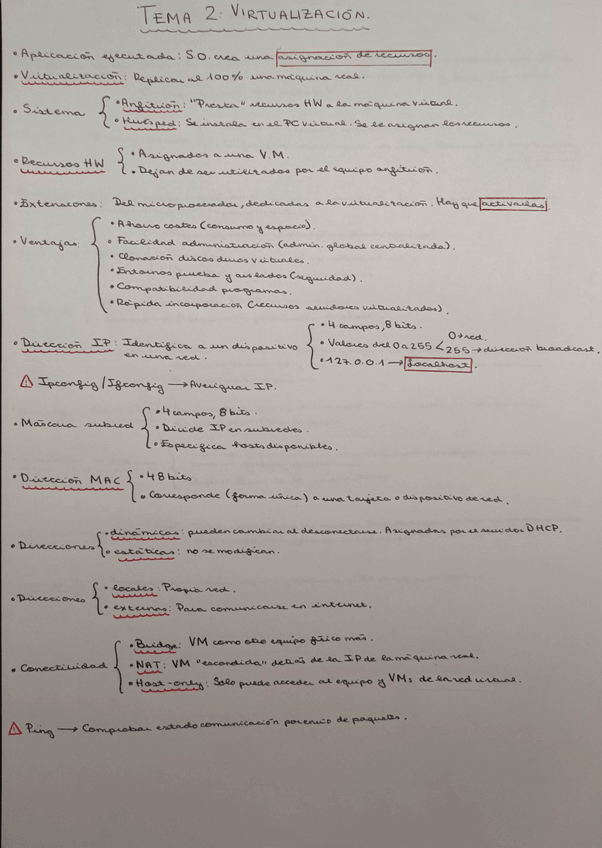 TEMA 2: VIRTUALIZACIÓN.
• Aplicación ejecutada: S.O. crea una asignación de recursos.
• Virtualización: Replicar al 100% una máquina real.
• Sistema
• Anfitrión: "Presta" recursos HW a la máquina virtual.
• Huésped: Se instala en el PC virtual. Se le asignan los recursos.
• Recursos HW
• Asignados a una V.M.
• Dejan de ser utilizados por el equipo anfitrión.
• Extensiones: Del microprocesador, dedicadas a la virtualización. Hay que activarlas
• Ventajas
• Ahorro costes (consumo y espacio).
• Facilidad administración (admin. global centralizada).
• Clonación discos duros virtuales.
• Entornos prueba y aislados (seguridad).
• Compatibilidad programas.
• Rápida incorporación (recursos servidores virtualizados).
• Dirección IP: Identifica a un dispositivo en una red.
• 4 campos, 8 bits.
• Valores del 0 a 255
0 → red.
255 → dirección broadcast.
• 127.0.0.1 → Localhost.
⚠ Ipconfig / Ifconfig → Averiguar IP.
• Máscara subred
• 4 campos, 8 bits.
• Divide IP en subredes.
• Especifica hosts disponibles.
• Dirección MAC
• 48 bits
• Corresponde (forma única) a una tarjeta o dispositivo de red.
• Direcciones
• dinámicas: pueden cambiar al desconectarse. Asignadas por el servidor DHCP.
• estáticas: no se modifican.
• Direcciones
• locales: Propia red.
• externas: Para comunicarse en internet.
• Conectividad
• Bridge: VM como otro equipo físico más.
• NAT: VM "escondida" detrás de la IP de la máquina real.
• Host-only: Solo puede acceder al equipo y VMs de la red virtual.
⚠ Ping → Comprobar estado comunicación por envío de paquetes.